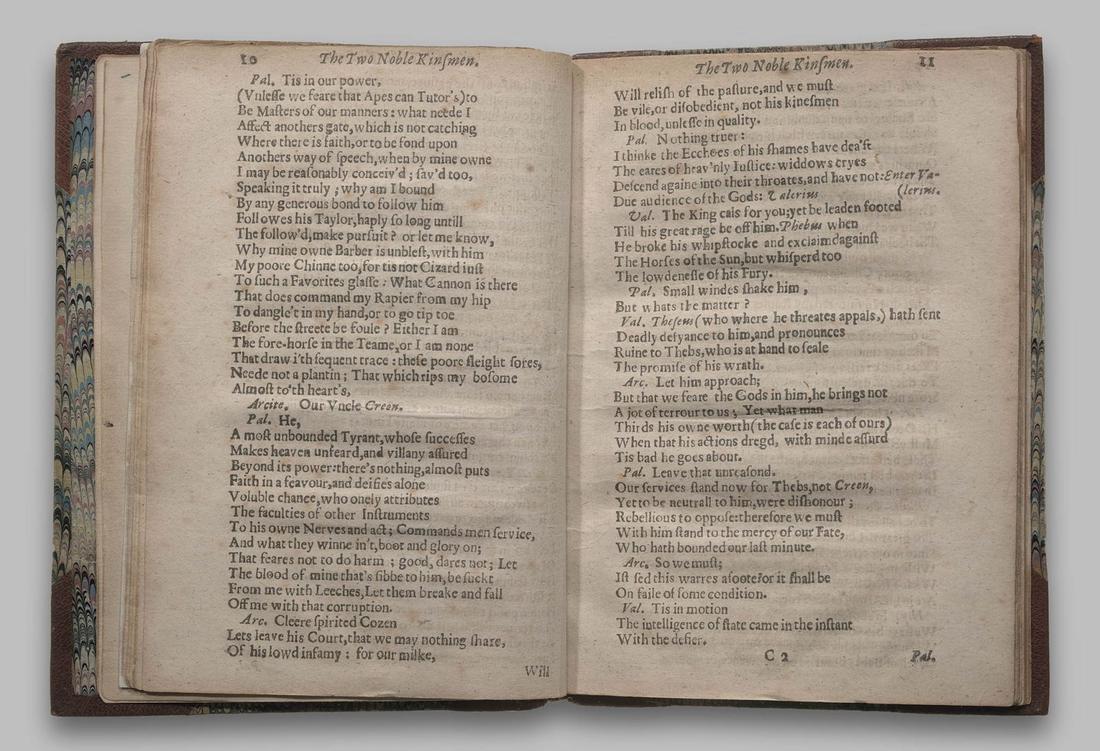 10 The Two Noble Kinſmen.
Pal. Tis in our power,
(Vnleſſe we feare that Apes can Tutor's) to
Be Maſters of our manners: what neede I
Affect anothers gate, which is not catching
Where there is faith, or to be fond upon
Anothers way of ſpeech, when by mine owne
I may be reaſonably conceiv'd; ſav'd too,
Speaking it truly; why am I bound
By any generous bond to follow him
Followes his Taylor, haply ſo long untill
The follow'd, make purſuit? or let me know,
Why mine owne Barber is unbleſt, with him
My poore Chinne too, for tis not Cizard iuſt
To ſuch a Favorites glaſſe: What Cannon is there
That does command my Rapier from my hip
To dangle't in my hand, or to go tip toe
Before the ſtreete be foule? Either I am
The fore-horſe in the Teame, or I am none
That draw i'th ſequent trace: theſe poore ſleight ſores,
Neede not a plantin; That which rips my boſome
Almoſt to'th heart's,
Arcite. Our Vncle Creon.
Pal. He,
A moſt unbounded Tyrant, whoſe ſucceſſes
Makes heaven unfeard, and villany aſſured
Beyond its power: there's nothing, almoſt puts
Faith in a feavour, and deifies alone
Voluble chance, who onely attributes
The faculties of other Inſtruments
To his owne Nerves and act; Commands men ſervice,
And what they winne in't, boot and glory on;
That feares not to do harm; good, dares not; Let
The blood of mine that's ſibbe to him, be ſuckt
From me with Leeches, Let them breake and fall
Off me with that corruption.
Arc. Cleere ſpirited Cozen
Lets leave his Court, that we may nothing ſhare,
Of his lowd infamy: for our milke,
Will
The Two Noble Kinſmen. 11
Will reliſh of the paſture, and we muſt
Be vile, or diſobedient, not his kineſmen
In blood, unleſſe in quality.
Pal. Nothing truer:
I thinke the Ecchoes of his ſhames have dea'ft
The eares of heav'nly Iuſtice: widdows cryes
Deſcend againe into their throates, and have not: Enter Va-
Due audience of the Gods: Valerius (lerius.
Val. The King cals for you; yet be leaden footed
Till his great rage be off him. Phebus when
He broke his whipſtocke and exclaimd againſt
The Horſes of the Sun, but whiſperd too
The lowdeneſſe of his Fury.
Pal. Small windes ſhake him,
But whats the matter?
Val. Theſeus (who where he threates appals,) hath ſent
Deadly defyance to him, and pronounces
Ruine to Thebs, who is at hand to ſeale
The promiſe of his wrath.
Arc. Let him approach;
But that we feare the Gods in him, he brings not
A jot of terrour to us; Yet what man
Thirds his owne worth (the caſe is each of ours)
When that his actions dregd, with minde aſſurd
Tis bad he goes about.
Pal. Leave that unreaſond.
Our ſervices ſtand now for Thebs, not Creon,
Yet to be neutrall to him, were diſhonour;
Rebellious to oppoſe: therefore we muſt
With him ſtand to the mercy of our Fate,
Who hath bounded our laſt minute.
Arc. So we muſt;
Iſt ſed this warres afoote? or it ſhall be
On faile of ſome condition.
Val. Tis in motion
The intelligence of ſtate came in the inſtant
With the defier.
C 2 Pal.